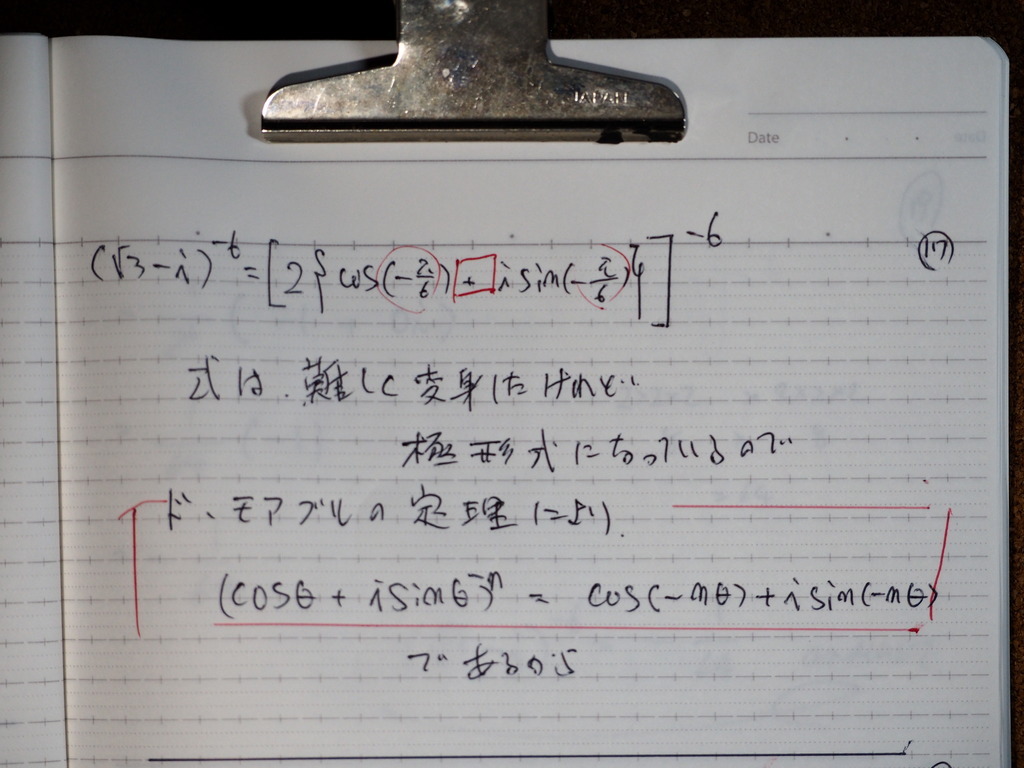 JAPAN
Date
(√3-i)⁻⁶ = [2{cos(-π/6) + i sin(-π/6)}]⁻⁶
⑰
式は、難しく変身したけれど…
極形式になっているので
ド・モアブルの定理により、
(cosθ + i sinθ)⁻ⁿ = cos(-nθ) + i sin(-nθ)
であるから